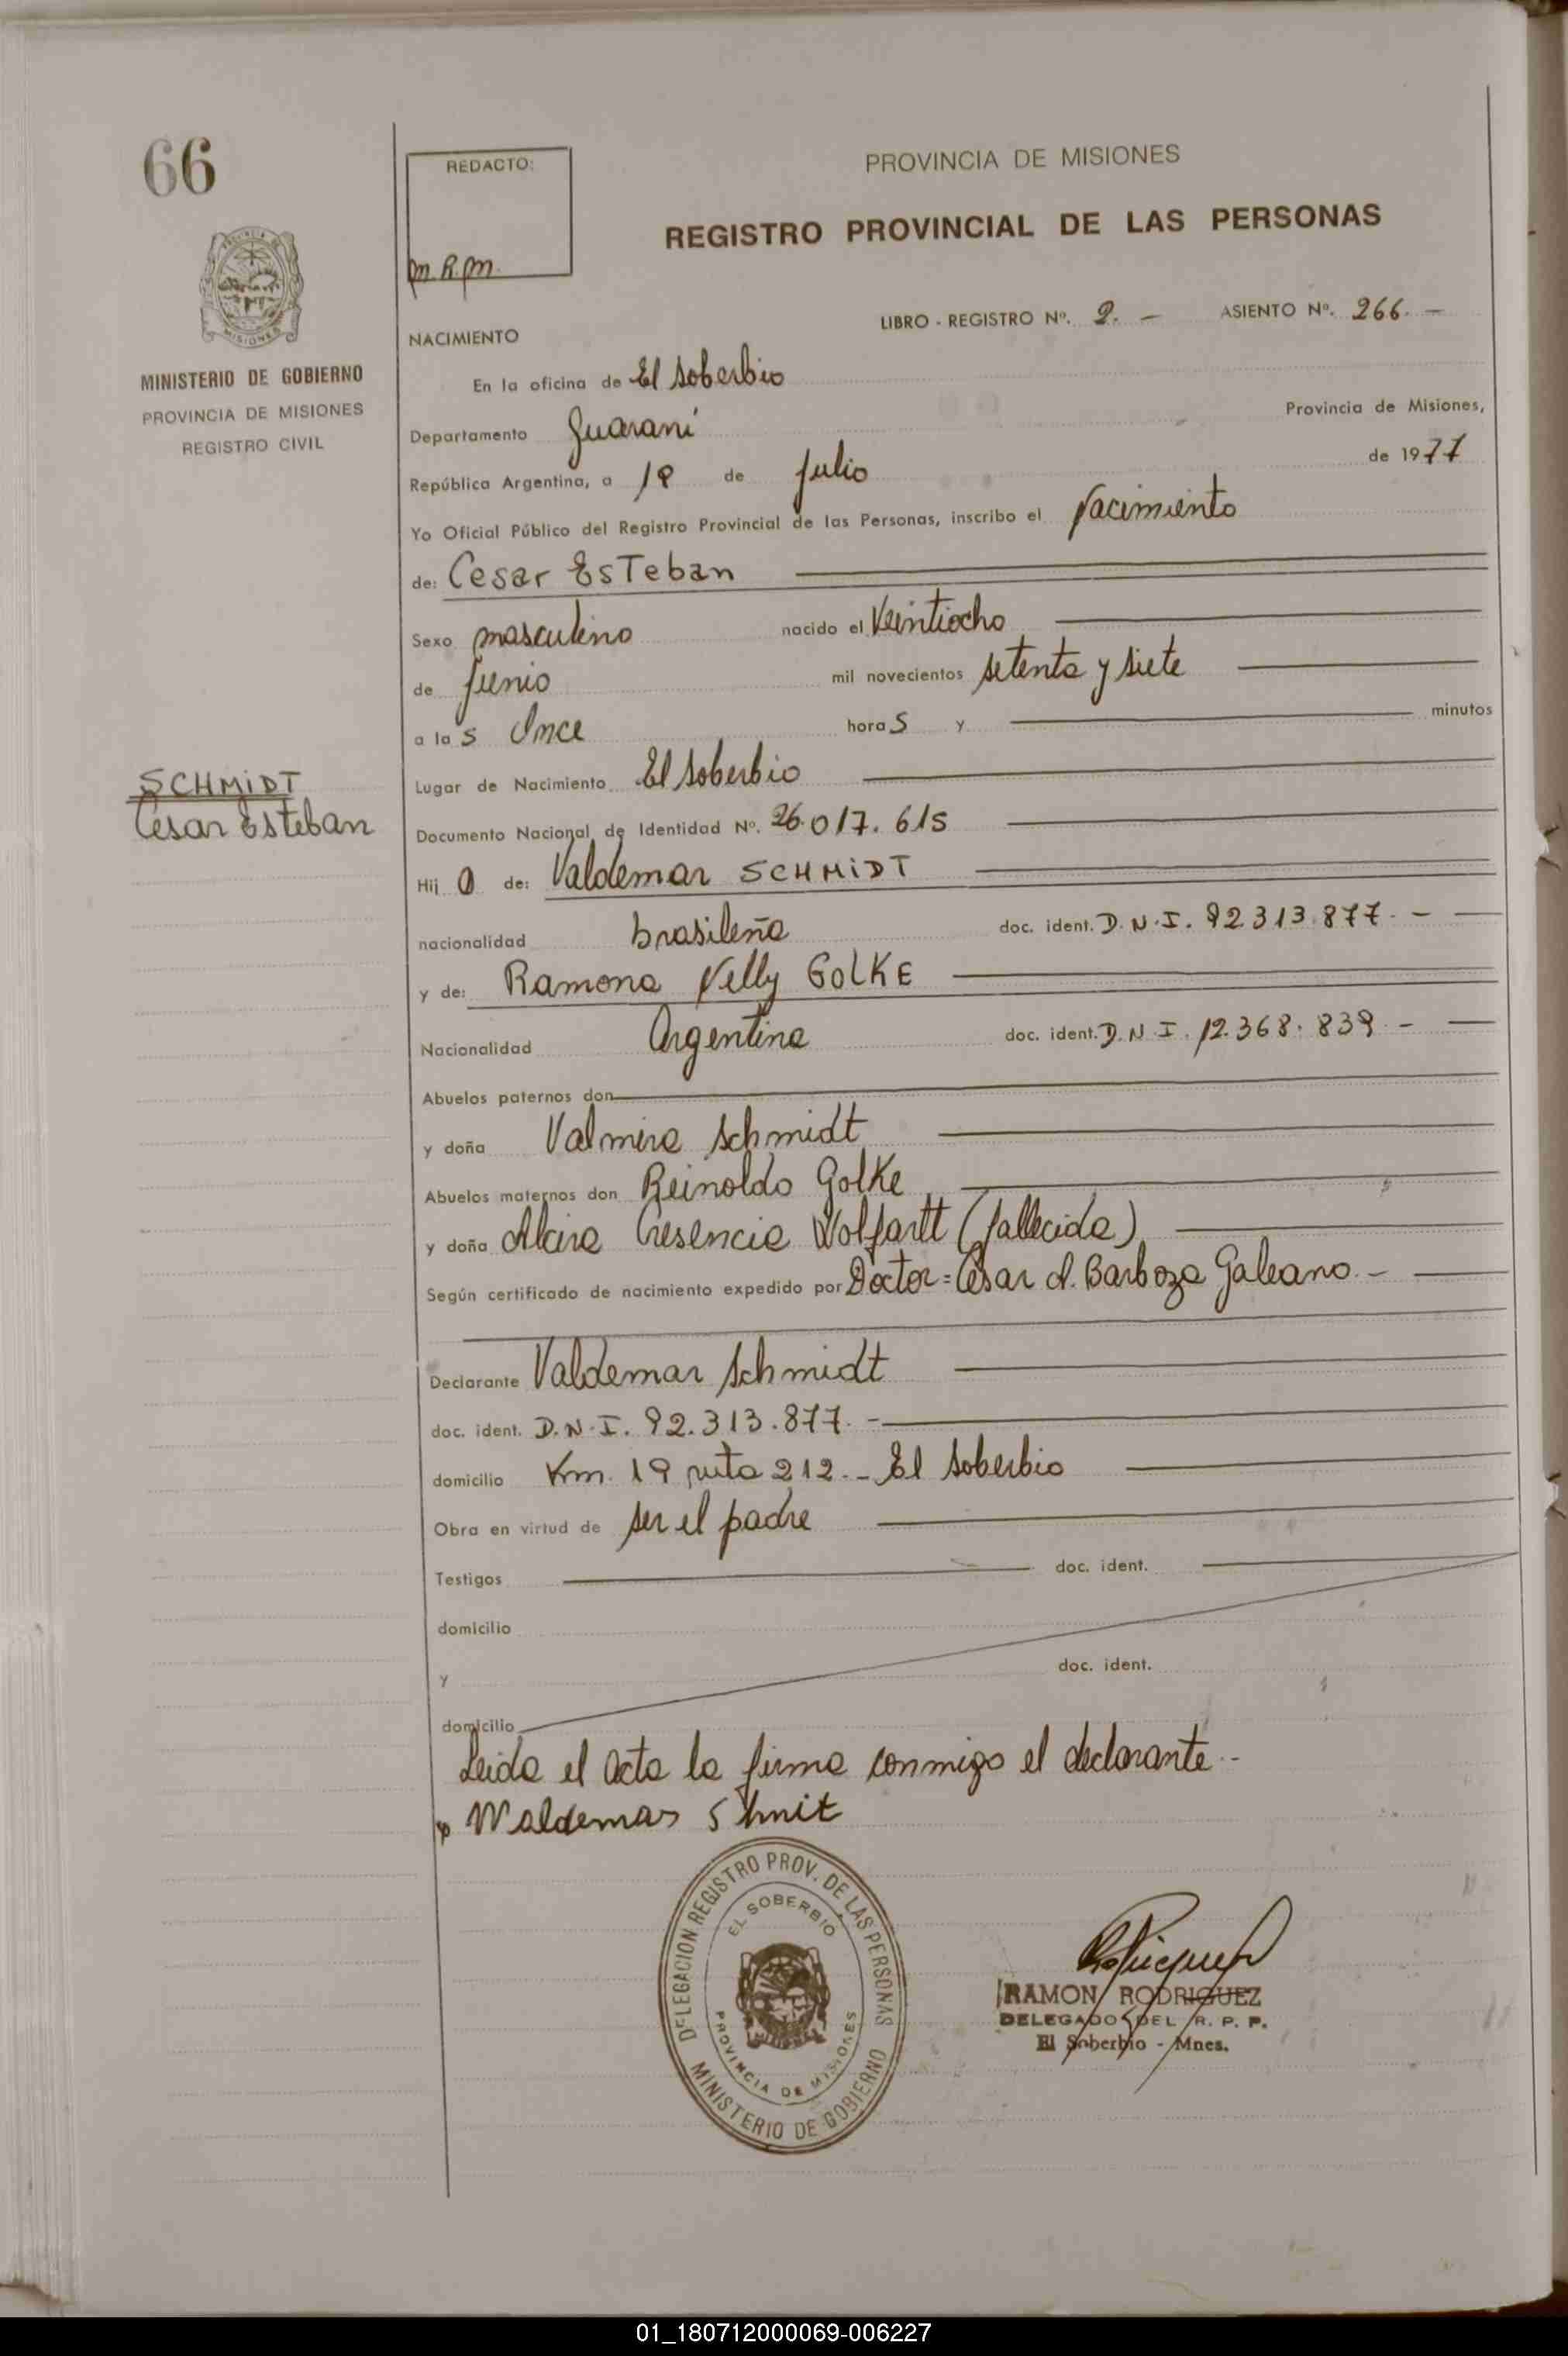 66
REDACTO:
m.R.m.
PROVINCIA DE MISIONES
REGISTRO PROVINCIAL DE LAS PERSONAS
LIBRO - REGISTRO Nº. 2. - ASIENTO Nº. 266. -
NACIMIENTO
PROVINCIA DE
MISIONES
MINISTERIO DE GOBIERNO
PROVINCIA DE MISIONES
REGISTRO CIVIL
En la oficina de El Soberbio
Departamento Guaraní Provincia de Misiones,
República Argentina, a 19 de Julio de 1977
Yo Oficial Público del Registro Provincial de las Personas, inscribo el Nacimiento
de: Cesar Esteban
Sexo masculino nacido el Veintiocho
de Junio mil novecientos setenta y siete
a las Once horas y minutos
SCHMIDT
Cesar Esteban
Lugar de Nacimiento El Soberbio
Documento Nacional de Identidad Nº. 26.017.615
Hijo de: Valdemar SCHMIDT
nacionalidad brasileña doc. ident. D.N.I. 92.313.877. -
y de: Ramona Nelly GOLKE
Nacionalidad Argentina doc. ident. D.N.I. 12.368.839 -
Abuelos paternos don
y doña Valmira Schmidt
Abuelos maternos don Reinoldo Golke
y doña Alcira Cresencia Wolfartt (fallecida)
Según certificado de nacimiento expedido por Doctor = César A. Barboza Galeano. -
Declarante Valdemar Schmidt
doc. ident. D.N.I. 92.313.877. -
domicilio Km. 19 ruta 212. - El Soberbio
Obra en virtud de ser el padre
Testigos doc. ident.
domicilio
y doc. ident.
domicilio
Leida el acta la firma conmigo el declarante. -
Waldemar Shmit
DELEGACION REGISTRO PROV. DE LAS PERSONAS
EL SOBERBIO
PROVINCIA DE MISIONES
MINISTERIO DE GOBIERNO
RAMON RODRIGUEZ
DELEGADO DEL R. P. P.
El Soberbio - Mnes.
01_180712000069-006227